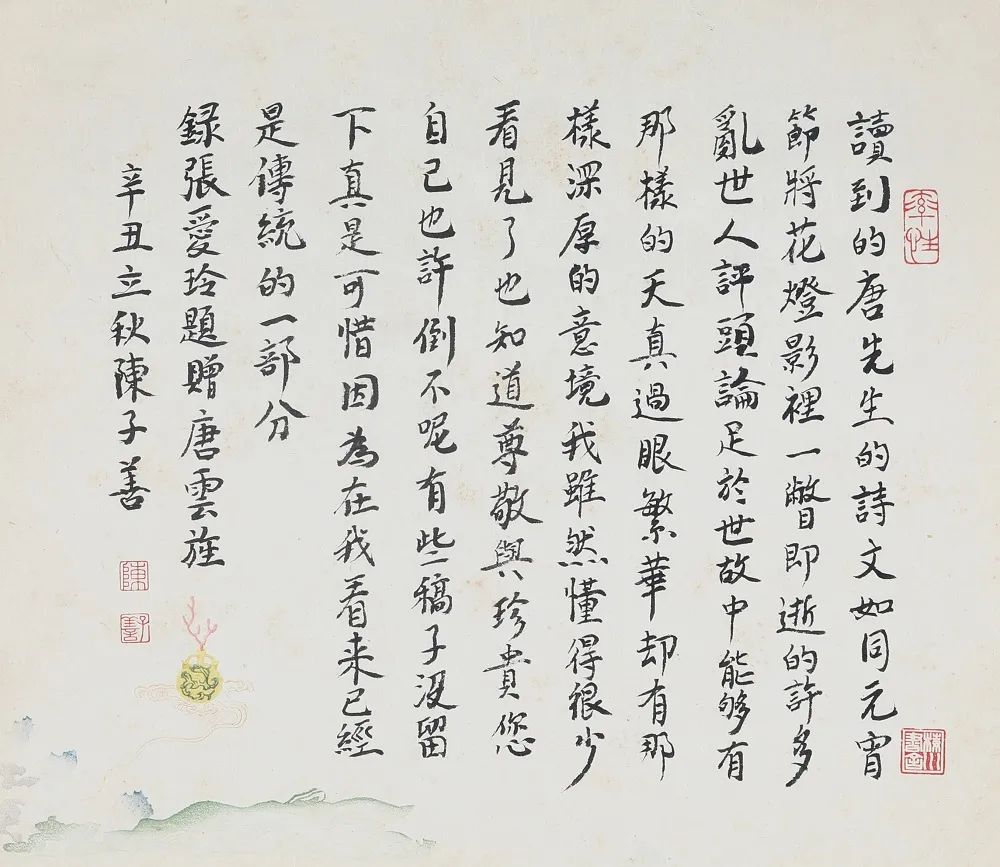 率性
讀到的唐先生的詩文如同元宵
節將花燈影裡一瞥即逝的許多
亂世人評頭論足於世故中能够有
那樣的天真過眼繁華却有那
樣深厚的意境我雖然懂得很少
看見了也知道尊敬與珍貴您
自己也許倒不呢有些稿子没留
下真是可惜因為在我看来已經
是傳統的一部分
録張愛玲題贈唐雲旌
辛丑立秋陳子善
陳
子善